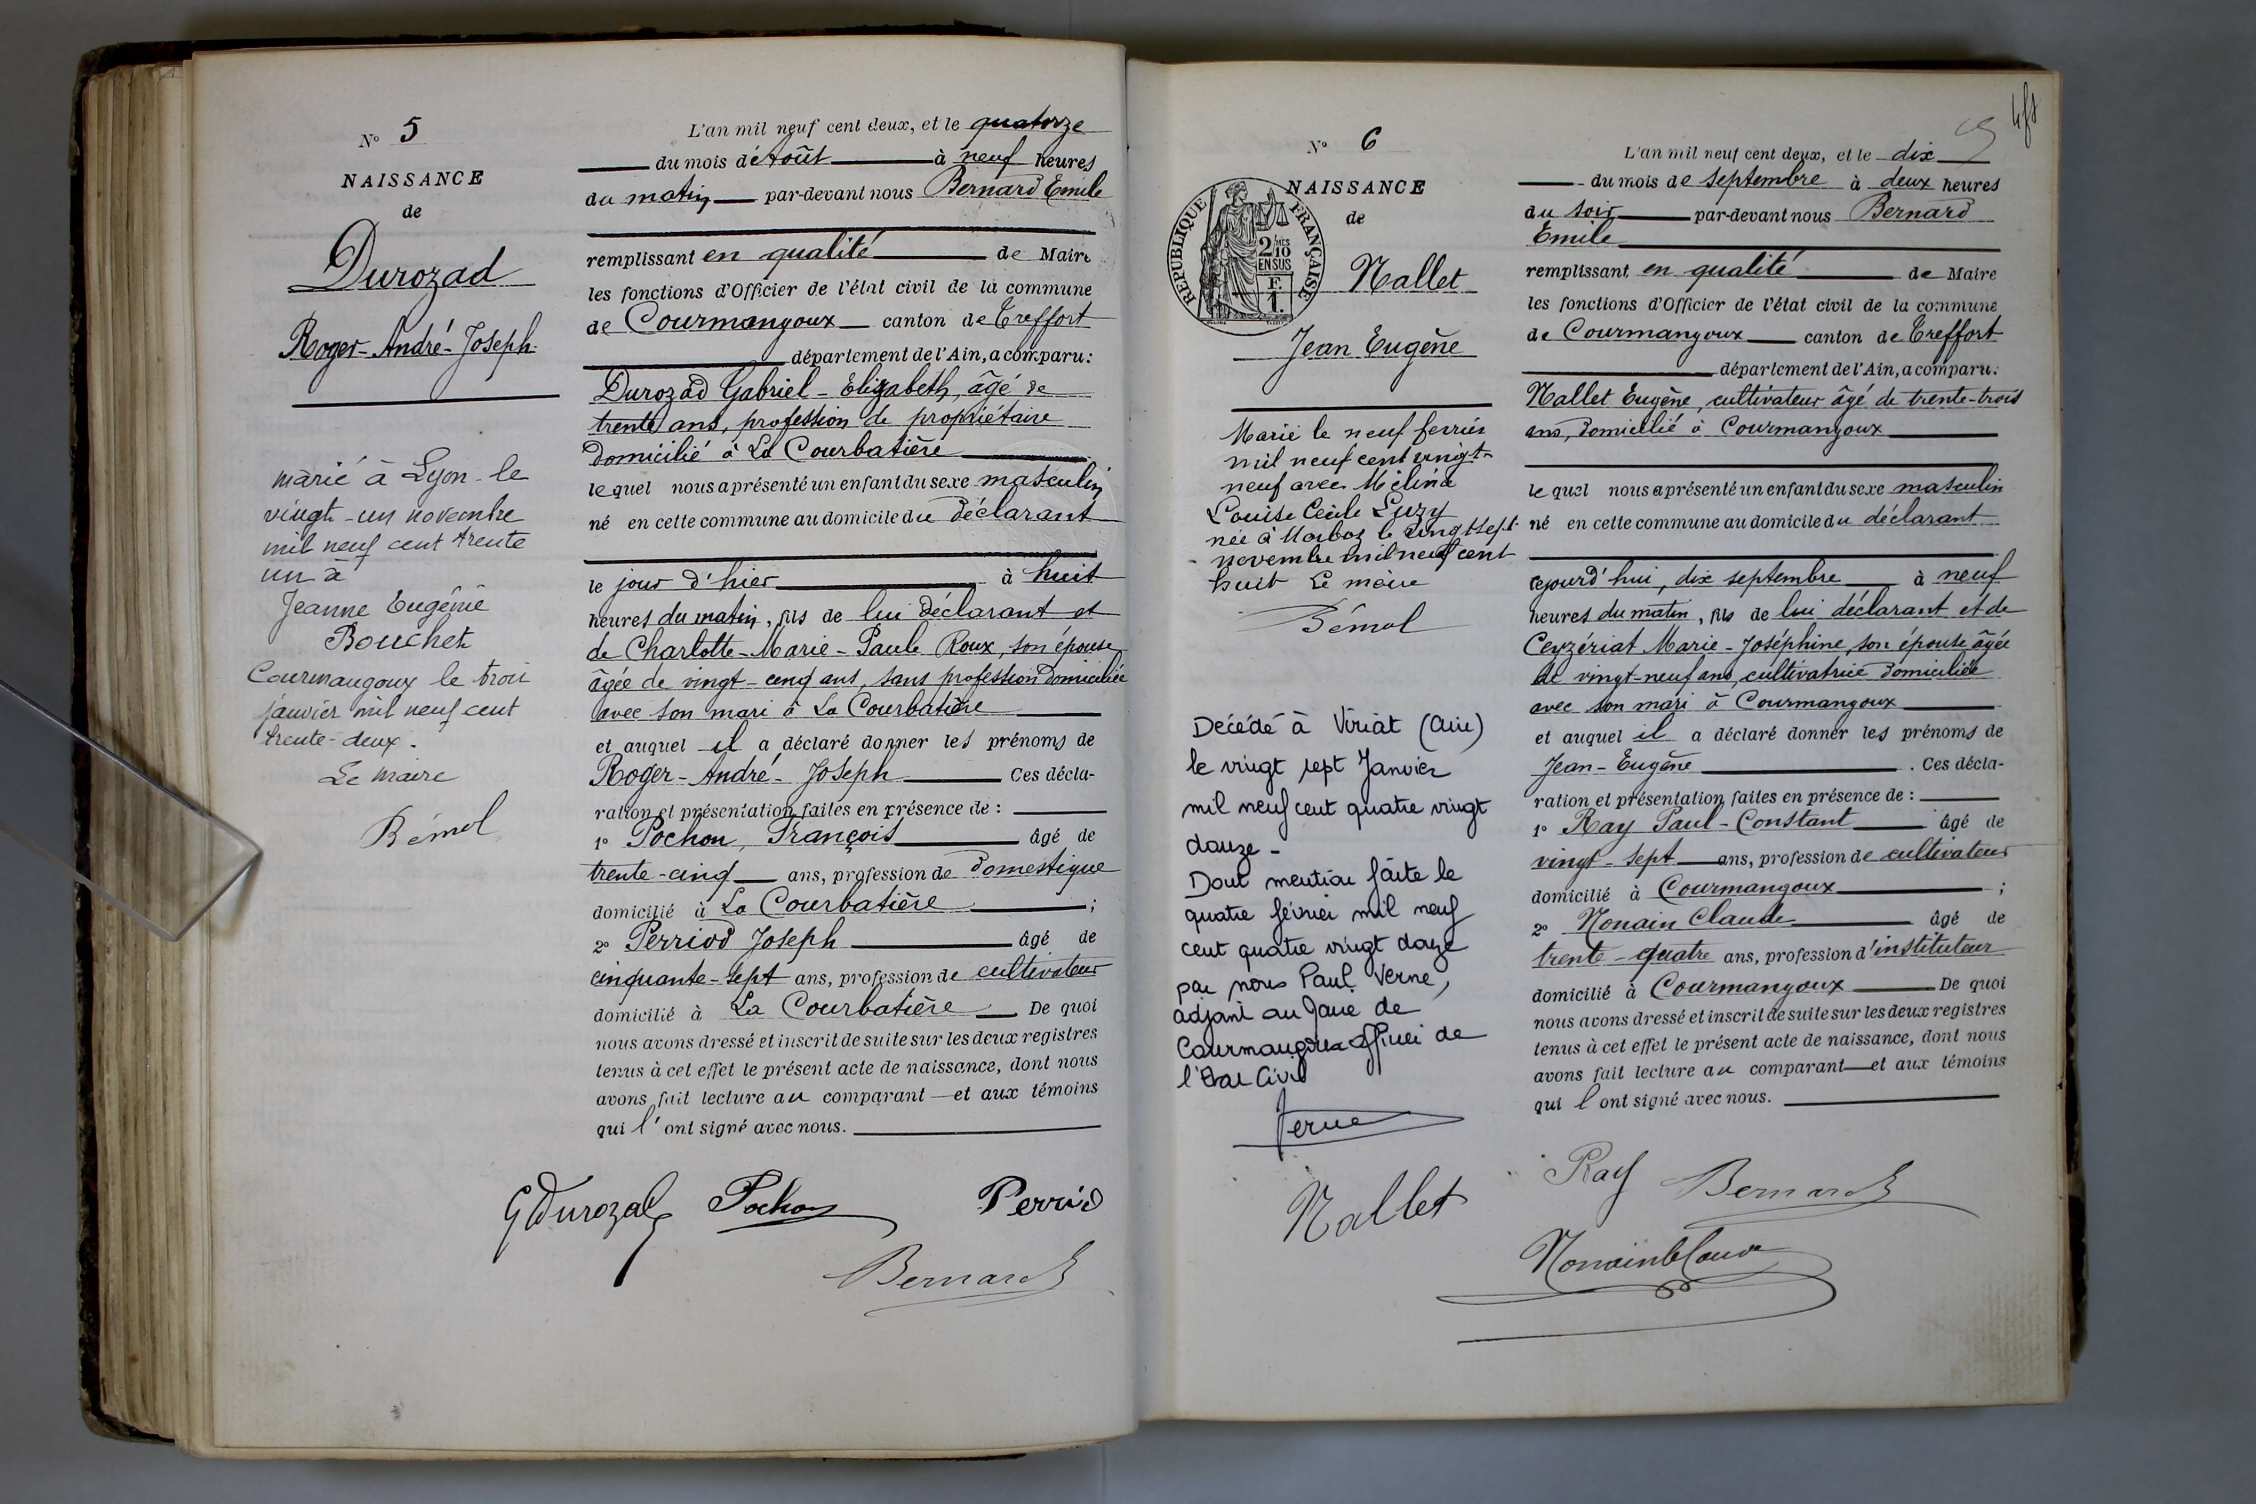 N° 5
NAISSANCE
de
Durozad
Roger-André-Joseph
marié à Lyon le
vingt-un novembre
mil neuf cent trente
un à
Jeanne Eugénie
Bouchet
Courmangoux le trois
janvier mil neuf cent
trente-deux.
Le maire
Bémol
L'an mil neuf cent deux, et le quatorze
du mois d'Août à neuf heures
du matin par-devant nous Bernard Emile
remplissant en qualité de Maire
les fonctions d'Officier de l'état civil de la commune
de Courmangoux canton de Treffort
département de l'Ain, a comparu:
Durozad Gabriel-Elizabeth, âgé de
trente ans, profession de propriétaire
domicilié à La Courbatière
lequel nous a présenté un enfant du sexe masculin
né en cette commune au domicile du déclarant
le jour d'hier à huit
heures du matin, fils de lui déclarant et
de Charlotte-Marie-Paule Roux, son épouse
âgée de vingt-cinq ans, sans profession domiciliée
avec son mari à La Courbatière
et auquel il a déclaré donner les prénoms de
Roger-André-Joseph Ces décla-
ration et présentation faites en présence de :
1° Pochon, François âgé de
trente-cinq ans, profession de domestique
domicilié à La Courbatière ;
2° Perriod Joseph âgé de
cinquante-sept ans, profession de cultivateur
domicilié à La Courbatière De quoi
nous avons dressé et inscrit de suite sur les deux registres
tenus à cet effet le présent acte de naissance, dont nous
avons fait lecture au comparant et aux témoins
qui l'ont signé avec nous.
G Durozad Pochon Perriod
Bernard
N° 6
NAISSANCE
de
REPUBLIQUE FRANÇAISE
2/10
EN SUS
F.
1.
Nallet
Jean Eugène
Marié le neuf février
mil neuf cent vingt-
neuf avec Mélina
Louise Cécile Luzy
née à Marboz le vingt sept
novembre mil neuf cent
huit Le maire
Bémol
Décédé à Viriat (Ain)
le vingt sept Janvier
mil neuf cent quatre vingt
douze -
Dont mention faite le
quatre février mil neuf
cent quatre vingt douze
par nous Paul Verne,
adjoint au Maire de
Courmangoux Officier de
l'Etat Civil
Verne
4f1
L'an mil neuf cent deux, et le dix
du mois de septembre à deux heures
du soir par-devant nous Bernard
Emile
remplissant en qualité de Maire
les fonctions d'Officier de l'état civil de la commune
de Courmangoux canton de Treffort
département de l'Ain, a comparu:
Nallet Eugène, cultivateur âgé de trente-trois
ans, domicilié à Courmangoux
lequel nous a présenté un enfant du sexe masculin
né en cette commune au domicile du déclarant
cejourd'hui, dix septembre à neuf
heures du matin, fils de lui déclarant et de
Ceyzériat Marie-Joséphine, son épouse âgée
de vingt-neuf ans, cultivatrice domiciliée
avec son mari à Courmangoux
et auquel il a déclaré donner les prénoms de
Jean-Eugène . Ces décla-
ration et présentation faites en présence de :
1° Ray Paul-Constant âgé de
vingt-sept ans, profession de cultivateur
domicilié à Courmangoux ;
2° Nonain Claude âgé de
trente-quatre ans, profession d'instituteur
domicilié à Courmangoux De quoi
nous avons dressé et inscrit de suite sur les deux registres
tenus à cet effet le présent acte de naissance, dont nous
avons fait lecture au comparant et aux témoins
qui l'ont signé avec nous.
Ray Bernard
Nallet
Nonain Claude